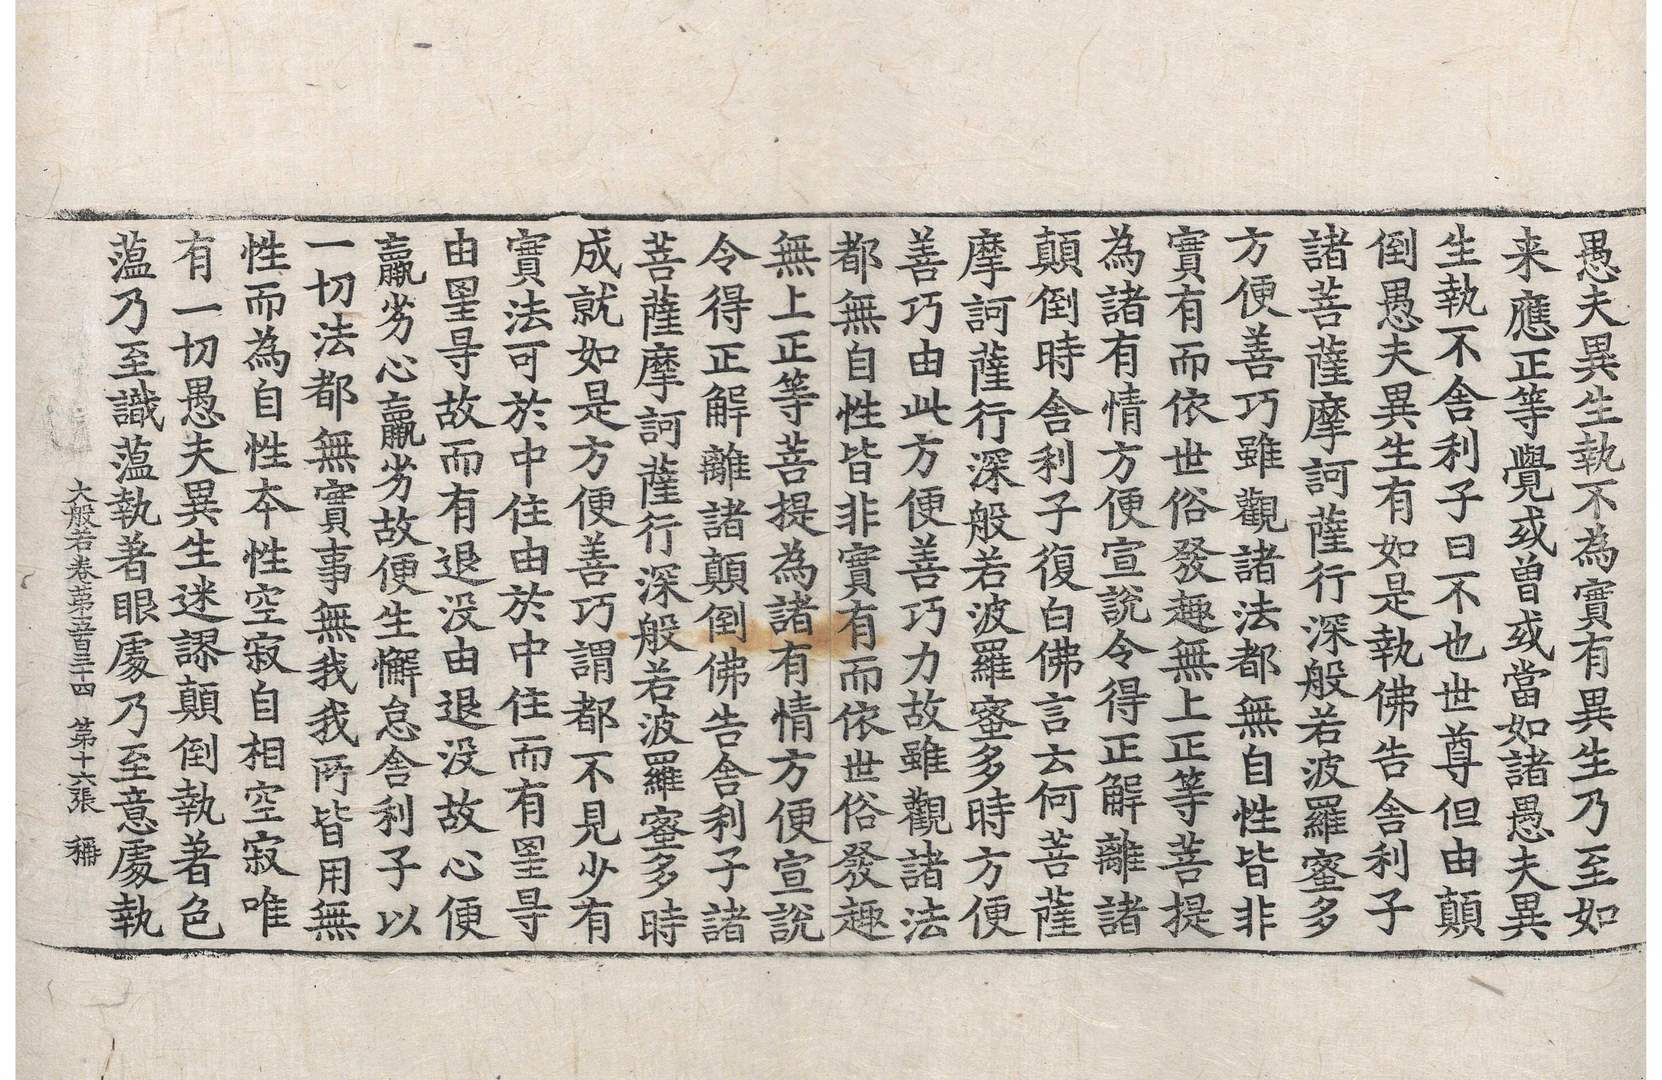 愚夫異生執不為實有異生乃至如
来應正等覺或曾或當如諸愚夫異
生執不舍利子曰不也世尊但由顛
倒愚夫異生有如是執佛告舍利子
諸菩薩摩訶薩行深般若波羅蜜多
方便善巧雖觀諸法都無自性皆非
實有而依世俗發趣無上正等菩提
為諸有情方便宣說令得正解離諸
顛倒時舍利子復白佛言云何菩薩
摩訶薩行深般若波羅蜜多時方便
善巧由此方便善巧力故雖觀諸法
都無自性皆非實有而依世俗發趣
無上正等菩提為諸有情方便宣說
令得正解離諸顛倒佛告舍利子諸
菩薩摩訶薩行深般若波羅蜜多時
成就如是方便善巧謂都不見少有
實法可於中住由於中住而有罣㝵
由罣㝵故而有退没由退没故心便
羸劣心羸劣故便生懈怠舍利子以
一切法都無實事無我我所皆用無
性而為自性本性空寂自相空寂唯
有一切愚夫異生迷謬顛倒執著色
蕰乃至識蕰執著眼處乃至意處執
大般若卷苐五百三十四 第十六張 稱